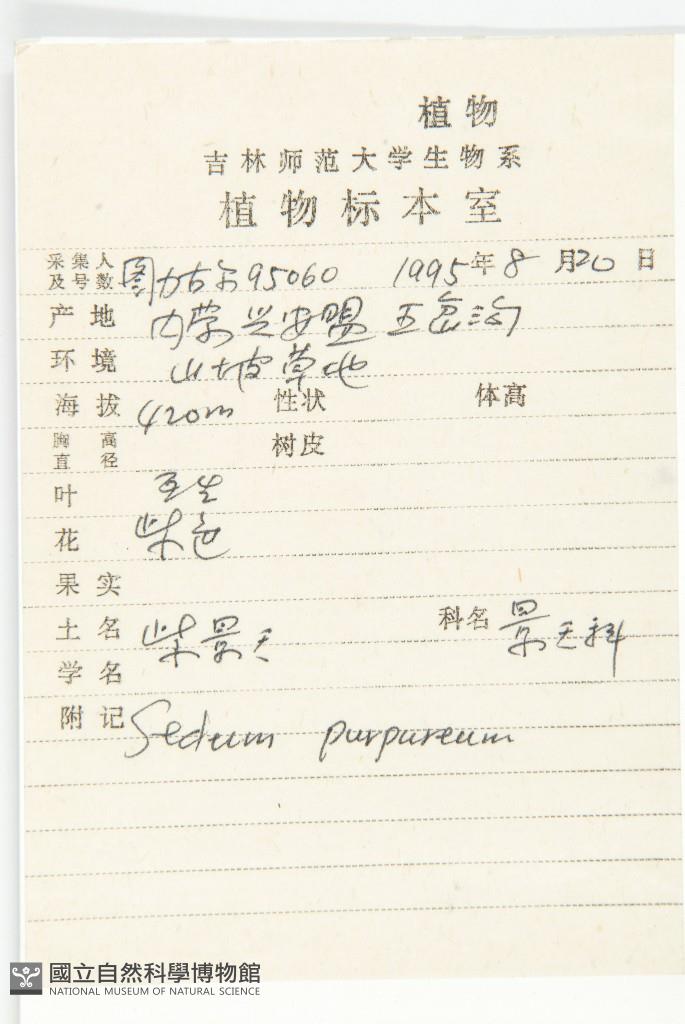 植物
吉林师范大学生物系
植物标本室
采集人及号数 图力古尔 95060 1995年8月20日
产地 内蒙兴安盟 五岔沟
环境 山坡草地
海拔 420m 性状 体高
胸高直径 树皮
叶 互生
花 紫色
果实
土名 紫景天 科名 景天科
学名
附记 Sedum purpureum
國立自然科學博物館
NATIONAL MUSEUM OF NATURAL SCIENCE